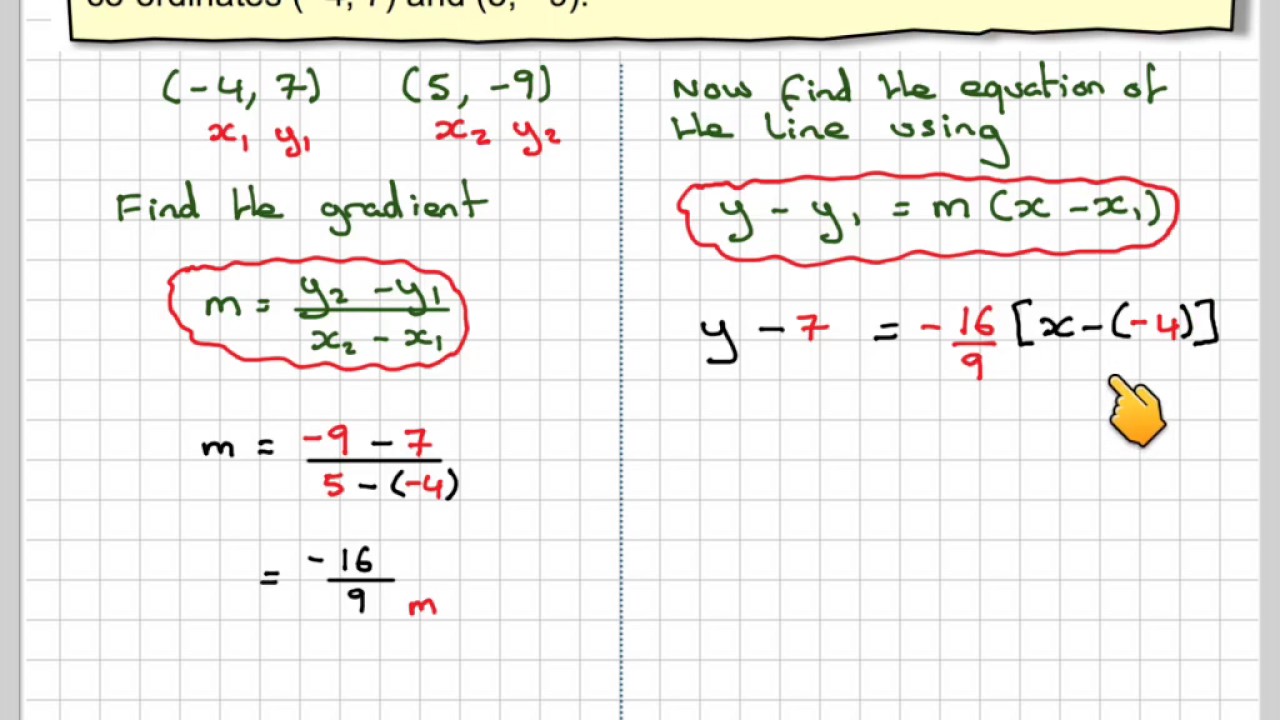 co-ordinates (−4, 7) and (5, −9).
(-4, 7) (5, -9)
x₁ y₁ x₂ y₂
Find the gradient
m = y₂ - y₁ / x₂ - x₁
m = -9 - 7 / 5 - (-4)
= -16 / 9 m
Now find the equation of
the line using
y - y₁ = m (x - x₁)
y - 7 = - 16/9 [x - (-4)]